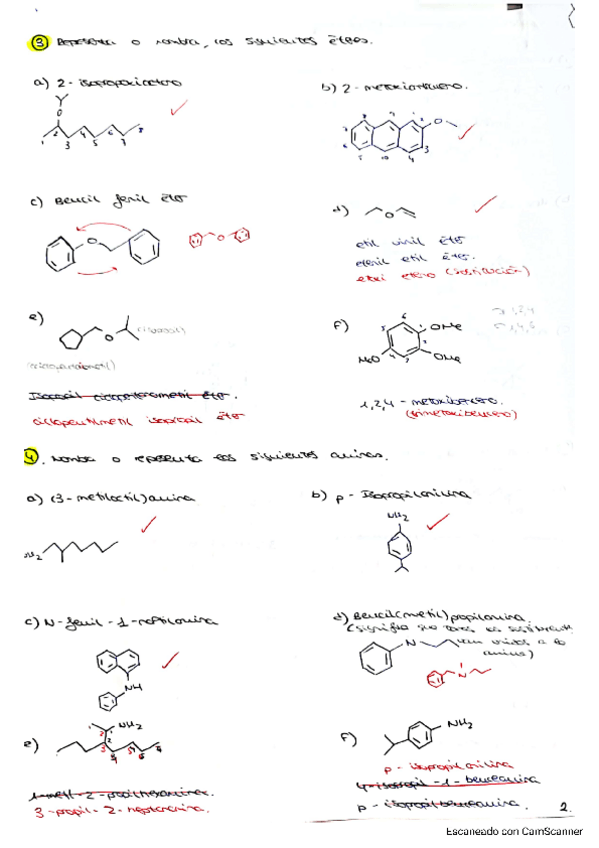 3 Representa o nombra, los siguientes éteres.
a) 2- isopropoxioctano
b) 2- metoxiantraceno.
c) Bencil fenil éter
d)
etil vinil éter
etenil etil éter.
(sustitución)
e)
(isopropil)
Isopropil ciclopentilmetil éter.
ciclopentilmetil isopropil éter
f)
OMe
OMe
MeO
1,2,4 - metoxibenceno.
(trimetoxibenceno)
4. Nombra o representa las siguientes aminas.
a) (3-metiloctil)amina
NH2
b) p- Isopropilanilina
NH2
c) N-fenil-1-naftilamina
NH
d) Bencil(metil)propilamina.
(significa que todos los sustituyentes
van unidos a la
amina)
N
N
e)
NH2
1-metil-2-propilhexanamina.
3-propil-2-heptanamina.
f)
NH2
p- isopropilanilina
4-isopropil-1-bencenamina
p- isopropilbencenamina.
2.
Escaneado con CamScanner